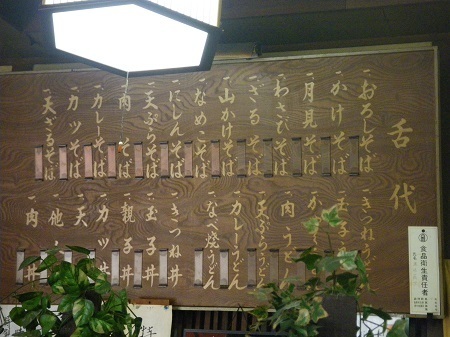 舌代
一おろしそば
一かけそば
一月見そば
一わさびそば
一ざるそば
一山かけそば
一なめこそば
一にしんそば
一天ぷらそば
一肉そば
一カレーそば
一カツそば
一天ざるそば
一きつねうどん
一玉子
一か
一肉うどん
一天ぷらうどん
一カレーうどん
一なべ焼うどん
一きつね丼
一玉子丼
一親子丼
一カツ丼
一天丼
一他丼
一肉丼
食品衛生責任者